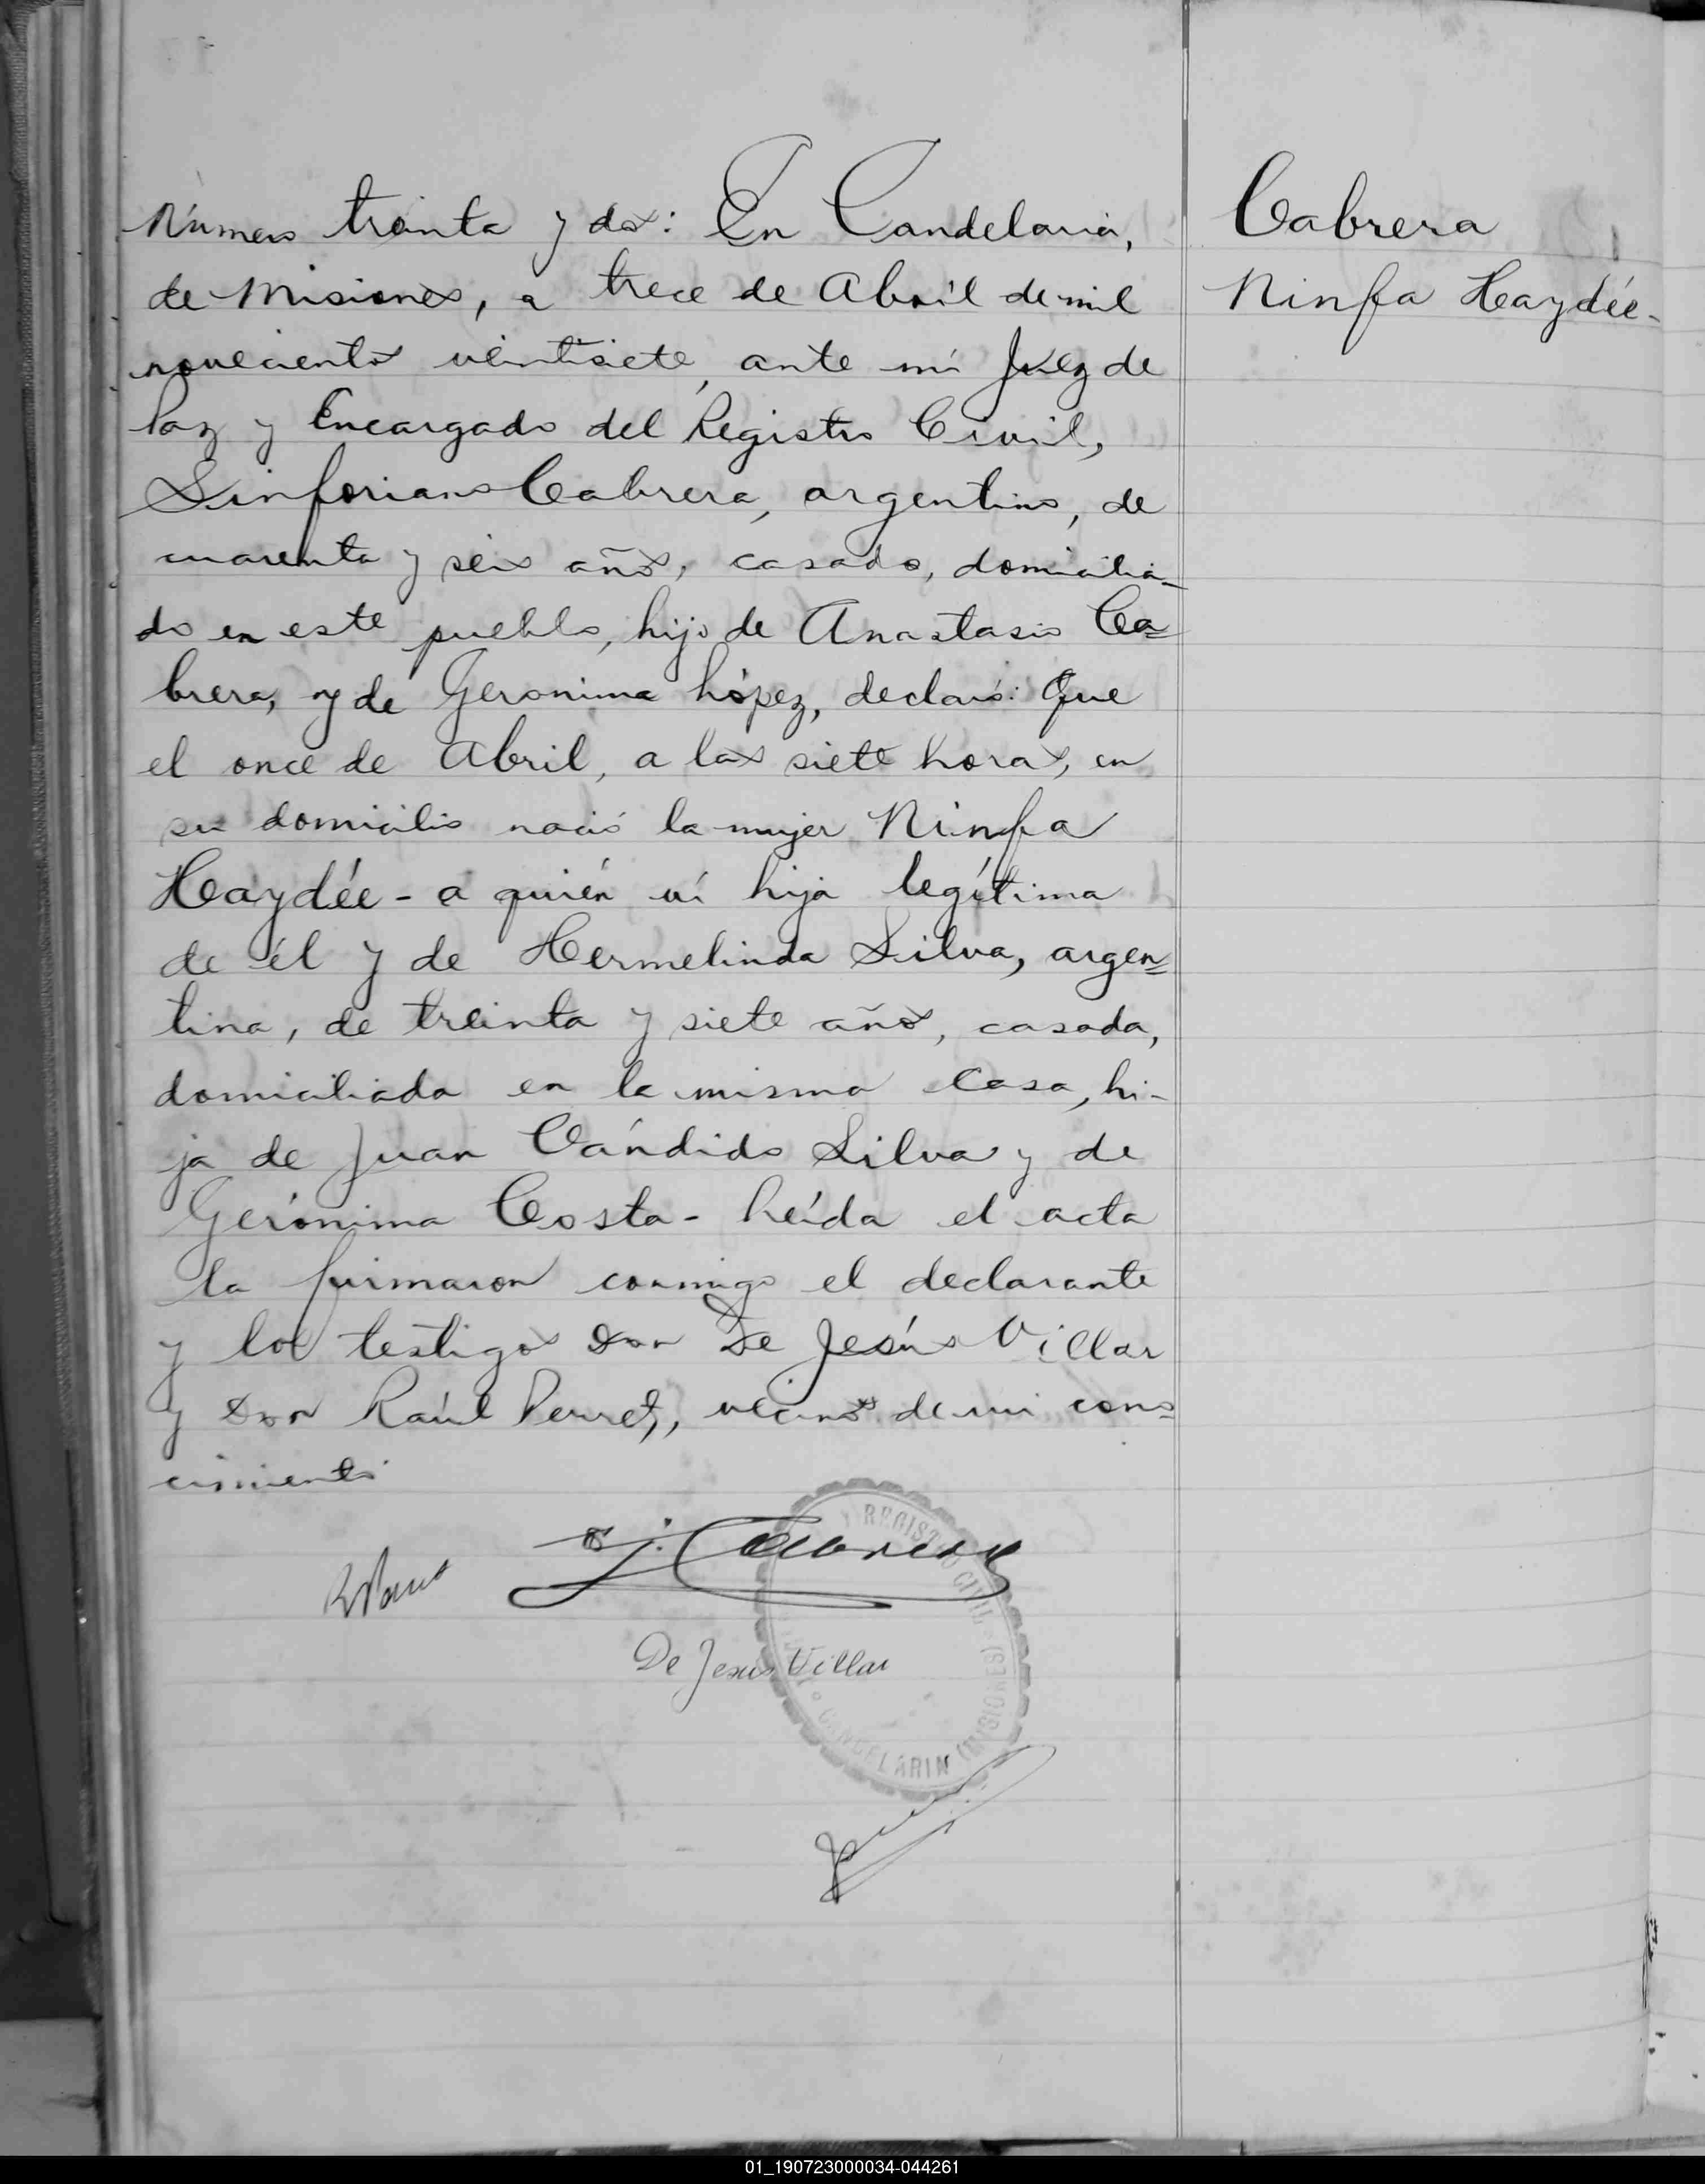 Número treinta y dos: En Candelaria,
de Misiones, a trece de Abril de mil
novecientos veintisiete, ante mí Juez de
Paz y Encargado del Registro Civil,
Sinforiano Cabrera, argentino, de
cuarenta y seis años, casado, domicilia-
do en este pueblo, hijo de Anastasio Ca=
brera, y de Geronima López, declaró: Que
el once de Abril, a las siete horas, en
su domicilio nació la mujer Ninfa
Haydée - a quién ví hija legítima
de él y de Hermelinda Silva, argen=
tina, de treinta y siete años, casada,
domiciliada en la misma casa, hi-
ja de Juan Cándido Silva y de
Gerónima Costa - Leída el acta
la firmaron conmigo el declarante
y los testigos Don De Jesús Villar
y Don Raúl Perret, vecinos de mi cono=
cimiento
Cabrera
Ninfa Haydée-
S. Cabrera
De Jesús Villar
Y REGISTRO CIVIL
CANDELARIA (MISIONES)
01_190723000034-044261